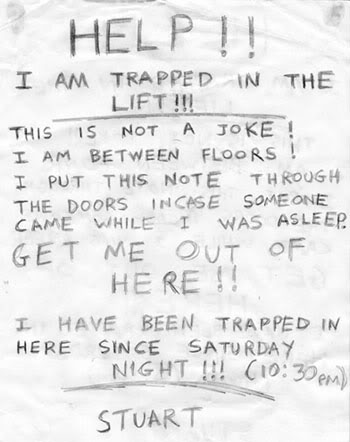 HELP!!
I AM TRAPPED IN THE
LIFT!!!
THIS IS NOT A JOKE!
I AM BETWEEN FLOORS!
I PUT THIS NOTE THROUGH
THE DOORS INCASE SOMEONE
CAME WHILE I WAS ASLEEP.
GET ME OUT OF
HERE!!
I HAVE BEEN TRAPPED IN
HERE SINCE SATURDAY
NIGHT!!! (10:30PM)
STUART